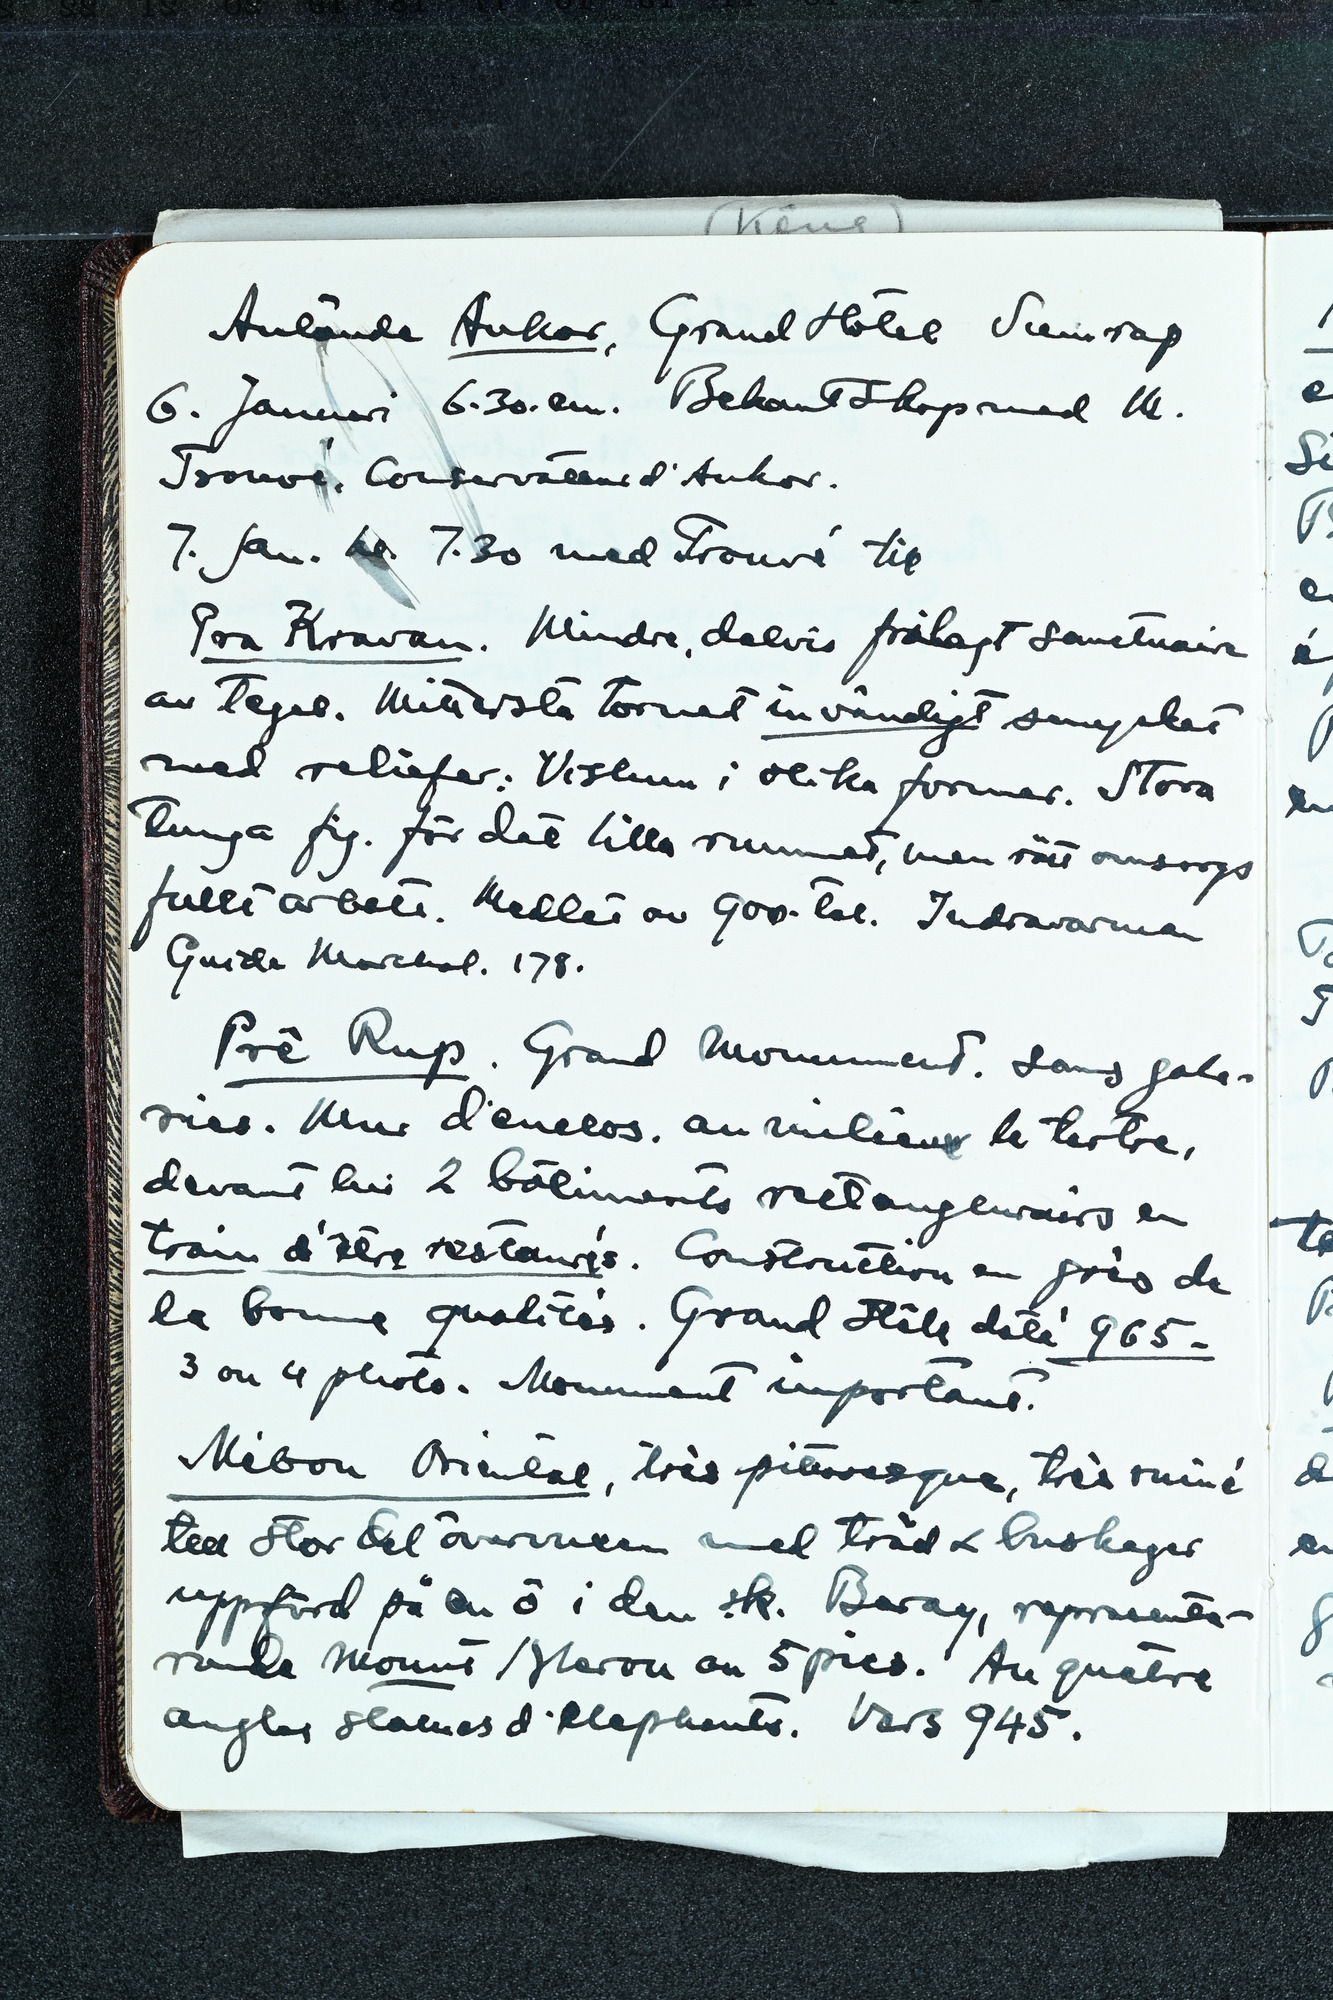 (Kēne)
Anlände Ankor, Grand Hôtel Siemrap
6. Januari 6.30. em. Bekantskap med M.
Trouvé, Conservateur d'Ankor.
7. Jan. kl. 7.30 med Trouvé till
Pra Kravan. Mindre, delvis frilagt sanctuaire
av tegel. Mittersta tornet invändigt smyckat
med reliefer: Vishnu i olika former. Stora
tunga fig. för det lilla rummet, men rätt omsorgs
fullt arbete. Medlet av 900-tal. Indravarman
Guide Marchal. 178.
Prê Rup. Grand Monument. Sans gale-
ries. Mur d'enclos. au milieu le tertre,
devant lui 2 bâtiments rectangulairs en
train d'être restaurés. Construction en grès de
la bonne qualités. Grand Stèle daté 965-
3 ou 4 photo. Monument important.
Mébon Oriental, très pittoresque, très ruiné
till stor del övervuxen med träd & buskager
uppförd på en ö i den sk. Baray, representa-
rande Mount Merou au 5 pics. Au quatre
angles statues d'elephants. Vers 945.